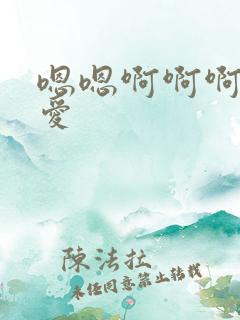 嗯嗯啊啊啊
愛
陳法拉
未经同意禁止转载